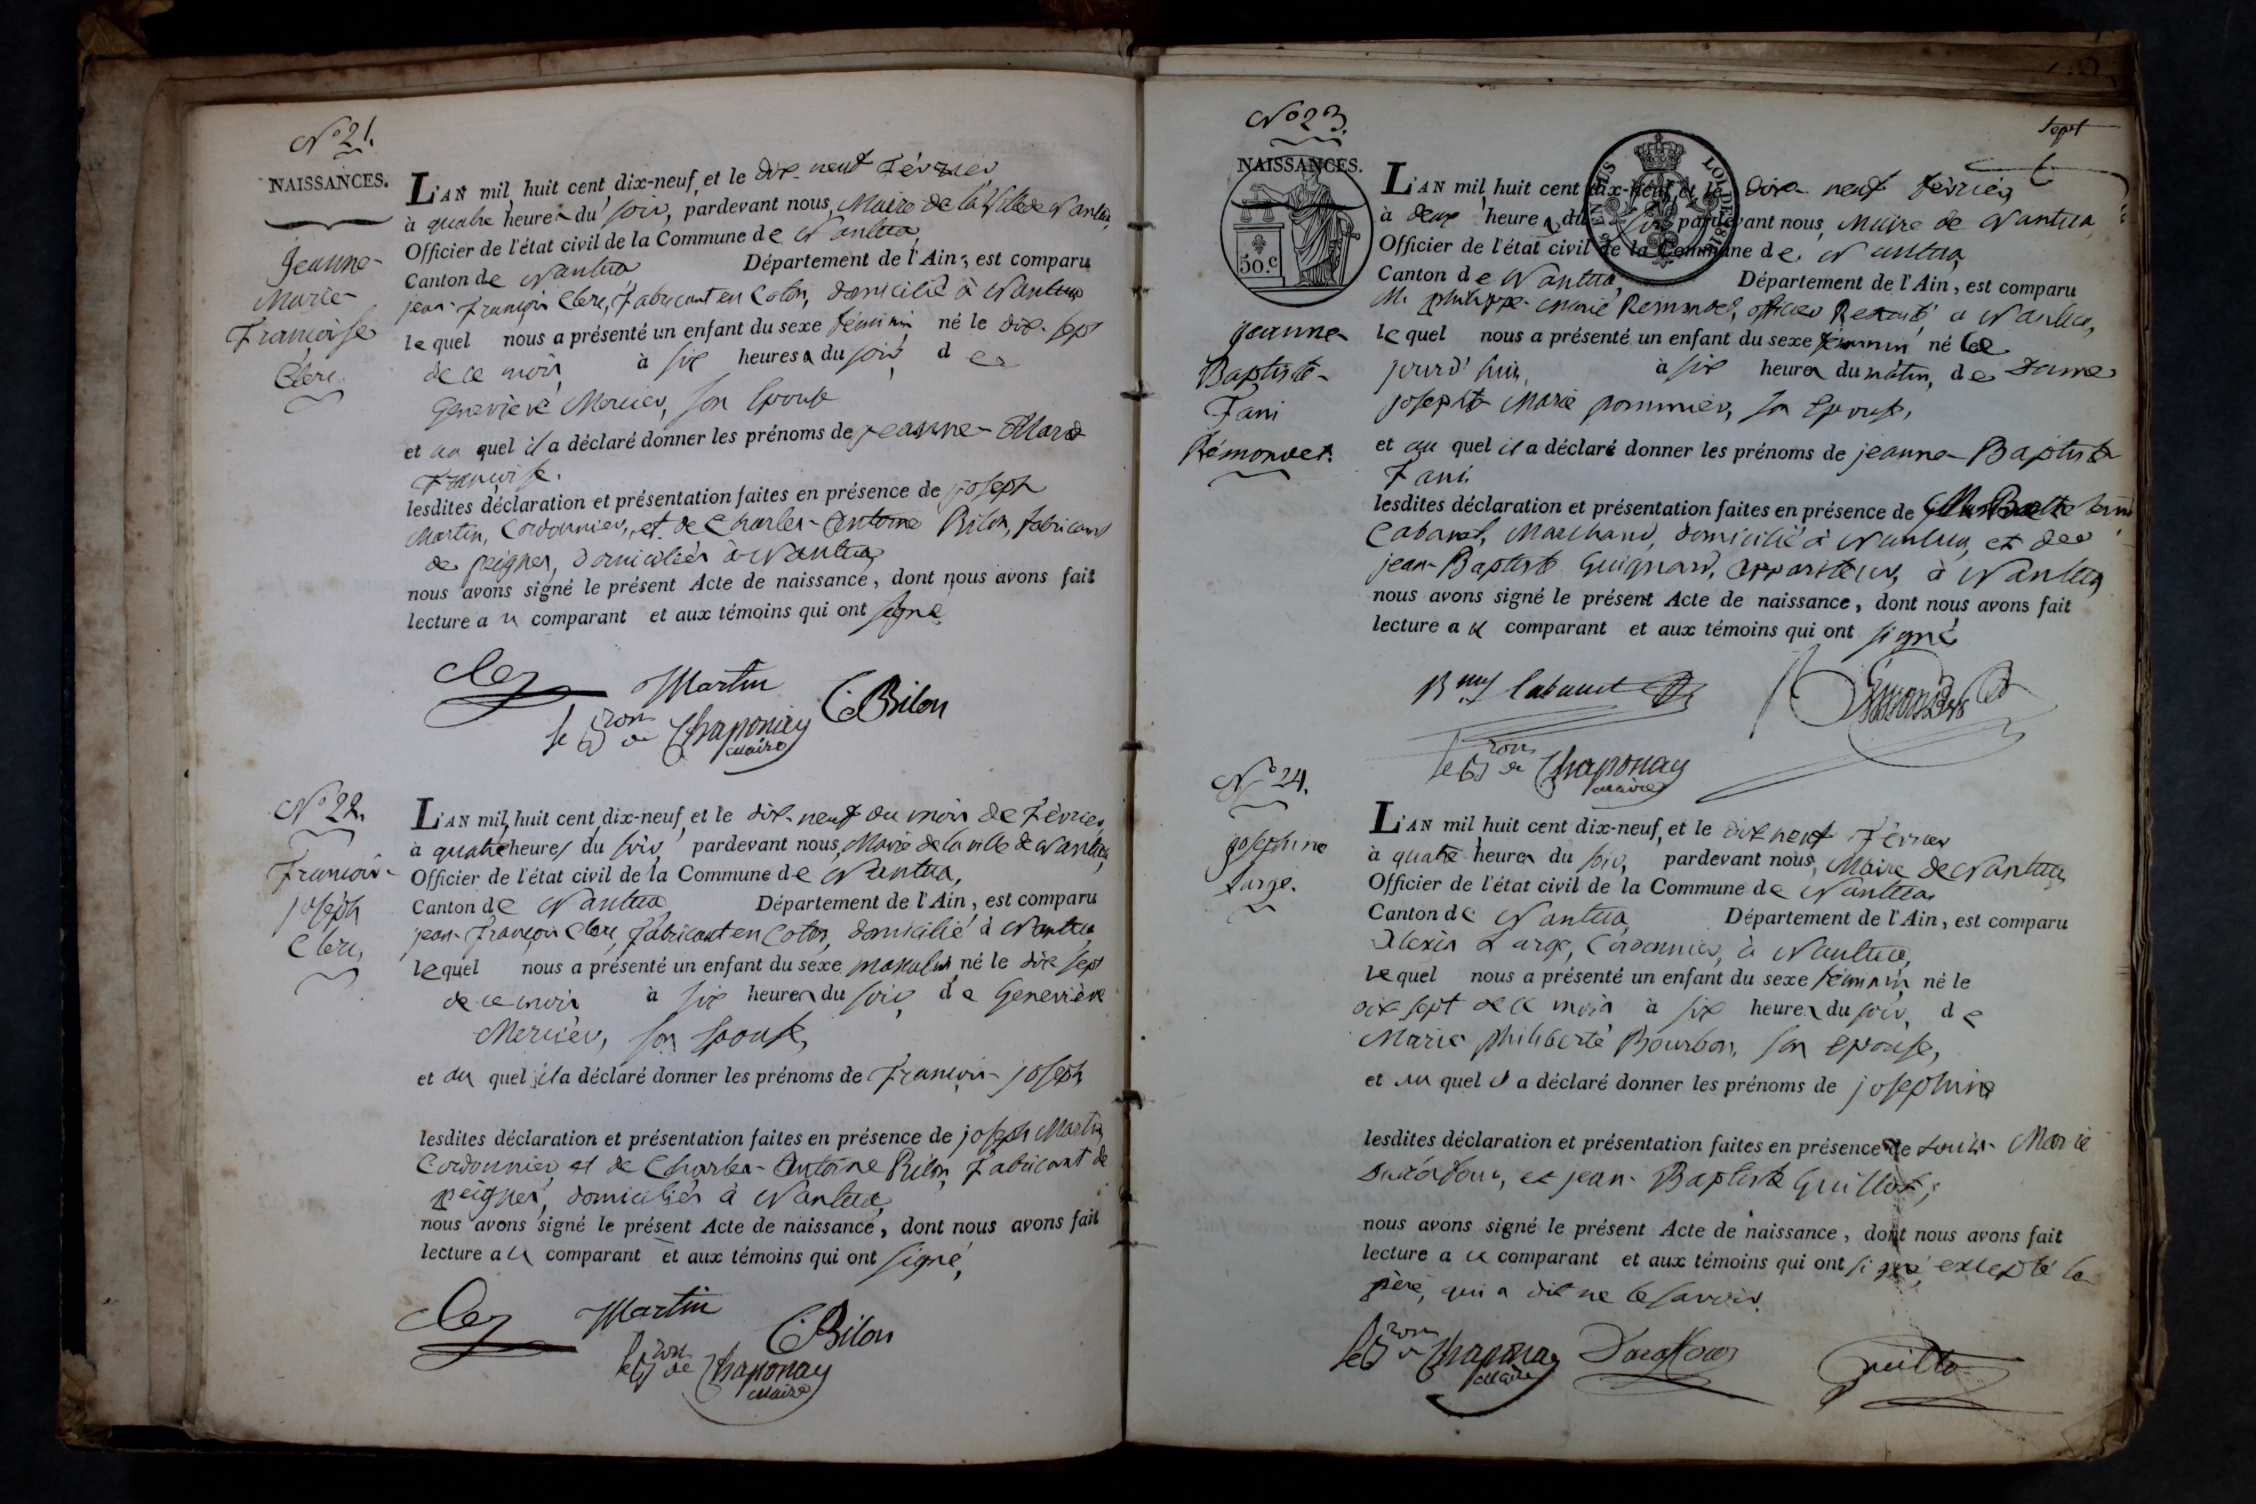 N° 21.
NAISSANCES.
Jeanne-
Marie-
Françoise
Clerc.
L'AN mil huit cent dix-neuf et le dix-neuf Février
à quatre heures du soir, pardevant nous, Maire de la Ville de Nantua,
Officier de l'état civil de la Commune de Nantua,
Canton de Nantua Département de l'Ain, est comparu
jean-François Clerc, fabricant en Coton, domicilié à Nantua
lequel nous a présenté un enfant du sexe féminin né le dix-sept
de ce mois à six heures du soir, de
Geneviève Mercier, son Epouse
et au quel il a déclaré donner les prénoms de jeanne-Marie
Françoise.
lesdites déclaration et présentation faites en présence de joseph
Martin, Cordonnier, et de Charles-Antoine Bilon, fabricant
de peignes, domiciliés à Nantua,
nous avons signé le présent Acte de naissance, dont nous avons fait
lecture au comparant et aux témoins qui ont signé.
Clerc Martin CBilon
le Bron de Chaponay
Maire
N° 22.
François-
joseph
Clerc,
L'AN mil huit cent dix-neuf et le dix-neuf du mois de Février,
à quatre heures du soir, pardevant nous, Maire de la ville de Nantua,
Officier de l'état civil de la Commune de Nantua,
Canton de Nantua Département de l'Ain, est comparu
jean-François Clerc, fabricant en Coton, domicilié à Nantua
lequel nous a présenté un enfant du sexe masculin né le dix sept
de ce mois à six heures du soir, de Geneviève
Mercier, son Epouse,
et au quel il a déclaré donner les prénoms de François-joseph
lesdites déclaration et présentation faites en présence de joseph Martin
Cordonnier, et de Charles-Antoine Bilon, fabricant de
peignes, domiciliés à Nantua,
nous avons signé le présent Acte de naissance, dont nous avons fait
lecture au comparant et aux témoins qui ont signé,
Clerc Martin CBilon
le Bron de Chaponay
Maire
Sept
N° 23.
NAISSANCES.
50.c
LOI DE 181
jeanne-
Baptiste-
Fani
Rémondet.
L'AN mil huit cent dix-neuf et le dix neuf février,
à deux heures du soir pardevant nous, Maire de Nantua
Officier de l'état civil de la Commune de Nantua,
Canton de Nantua, Département de l'Ain, est comparu
M. philippe-marie Remondet, officier Retraité à Nantua,
lequel nous a présenté un enfant du sexe féminin né ce
jourd'hui, à six heures du matin, de Dame
josephte Marie pommier, son Epouse,
et au quel il a déclaré donner les prénoms de jeanne-Baptiste
Fani.
lesdites déclaration et présentation faites en présence de
Cabanet, Marchand, domicilié à Nantua, et de
jean-Baptiste Guignard, appariteur, à Nantua,
nous avons signé le présent Acte de naissance, dont nous avons fait
lecture au comparant et aux témoins qui ont signé
Cabanet
le Bron de Chaponay
Maire
N° 24.
josephine
Large.
L'AN mil huit cent dix-neuf et le dix neuf Février
à quatre heures du soir, pardevant nous, Maire de Nantua,
Officier de l'état civil de la Commune de Nantua,
Canton de Nantua, Département de l'Ain, est comparu
Alexis Large, Cordonnier, à Nantua,
lequel nous a présenté un enfant du sexe féminin né le
dix sept de ce mois à six heures du soir, de
Marie philiberte Bourbon, son epouse,
et au quel il a déclaré donner les prénoms de josephine
lesdites déclaration et présentation faites en présence de Louis-Marie
et jean-Baptiste Guillot;
nous avons signé le présent Acte de naissance, dont nous avons fait
lecture au comparant et aux témoins qui ont signé, excepté le
père, qui a dit ne le savoir.
le Bron de Chaponay
Maire